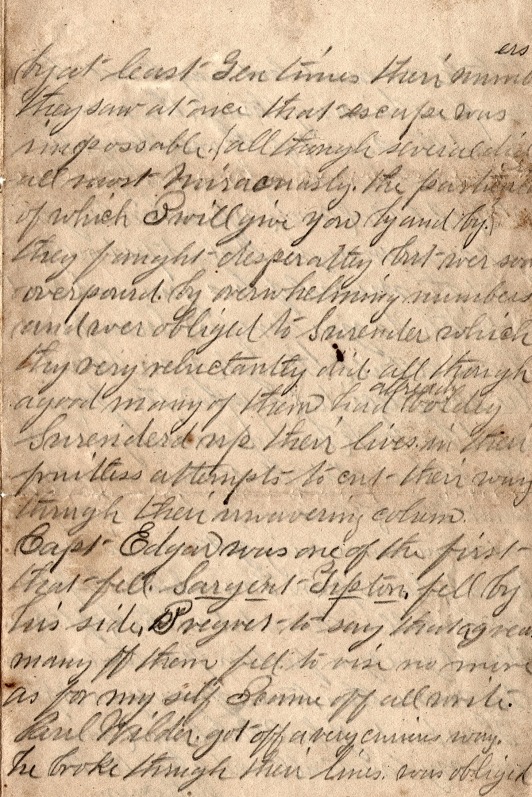 ers
by at least Ten times their num
they saw at once that escape was
impossable (all though several did
all most Miraculously. the particu
of which I will give you by and by.)
they faught desperatly but wer soon
overpourd. by overwhelming numbers
and wer obliged to Surender which
they very reluctantly did. all though
already
a good many of them had boldly
Surenderd up their lives in their
fruitless attempts to cut their way
through their unwavering colum.
Capt Edgar was one of the first
that fell. Sargent Tipton. fell by
his side, I regret to say that a grea
many of them fell to rise no more
as for my self I came off all write.
Wilder. got off a very curious way.
he broke through their lines. was obliged